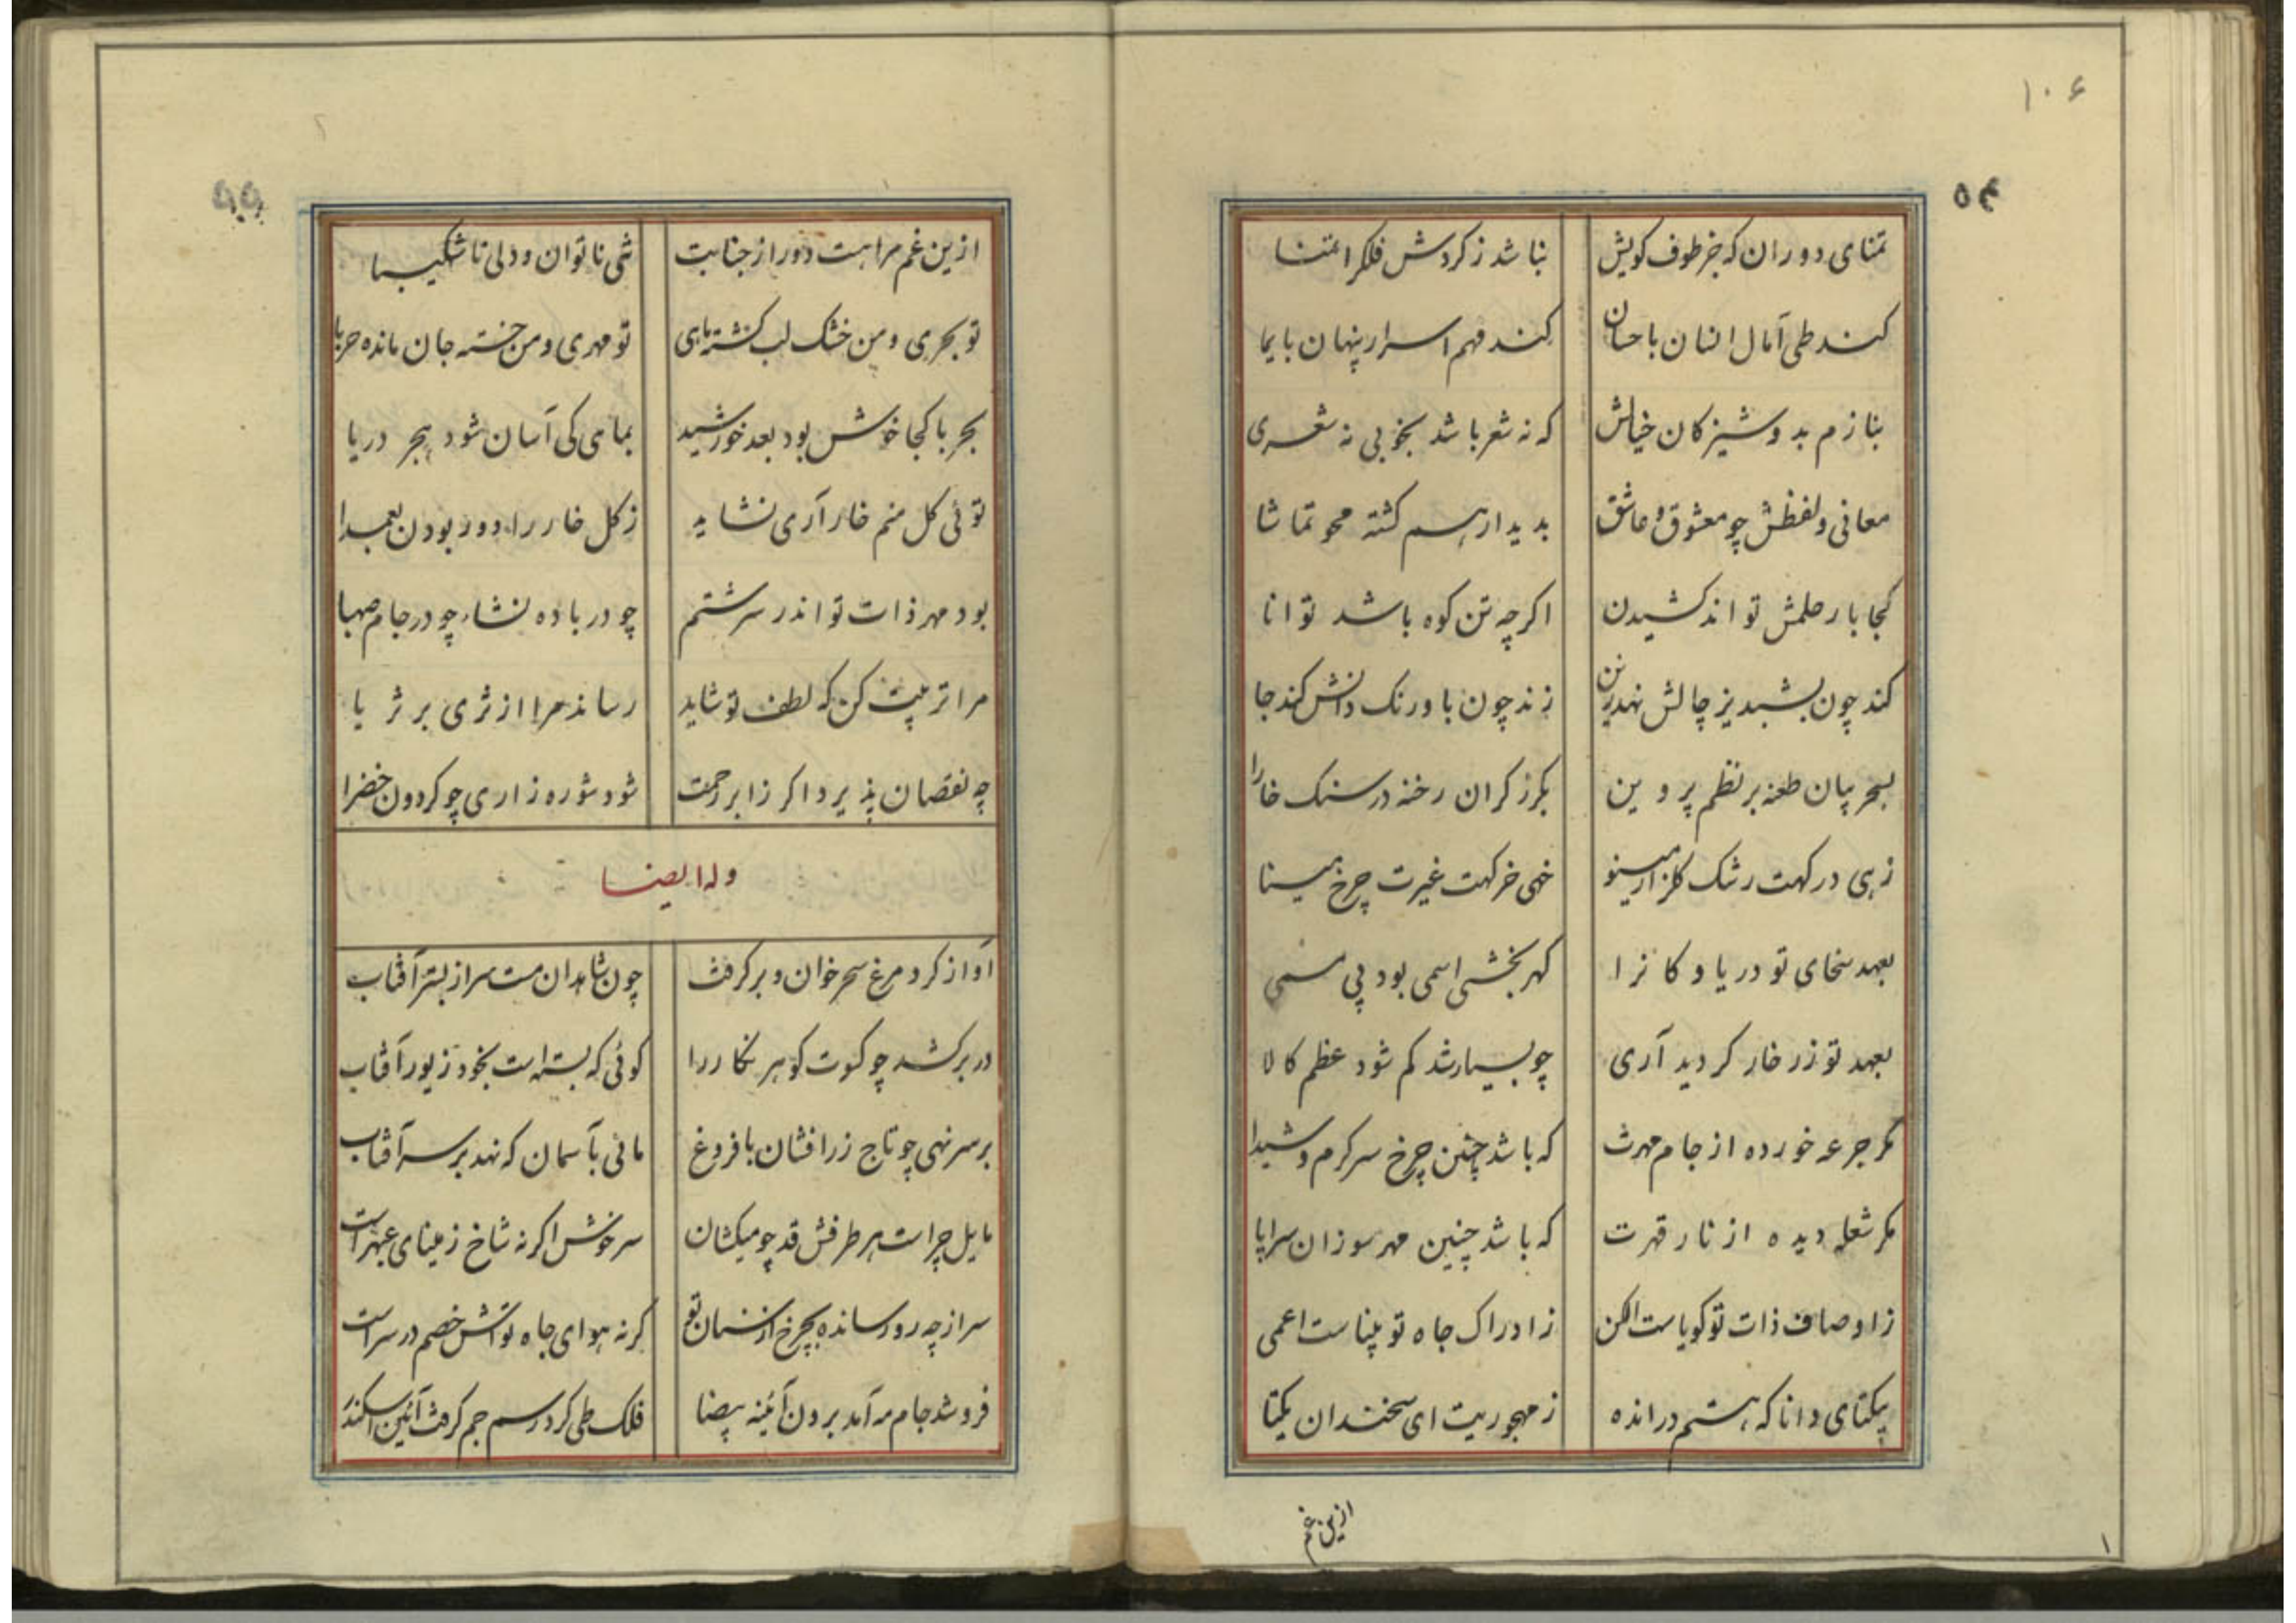 ۱۰۶
۵۴
تمنای دوران که جز طوف کویش نباشد ز کردش فلکرا تمنا
کند طی آمال انسان باحسان کند فهم اسرار پنهان بایما
بنازم بدوشیزکان خیالش که نه شعر باشد بخوبی نه شعری
معانی و لفظش چو معشوق و عاشق بدیدار هم کشته محو تماشا
کجا بار حلمش تواند کشیدن اکرچه تن کوه باشد توانا
کند چون بشبدیز چالش نهد زین زند چون باورنک دانش کند جا
بسحر بیان طعنه بر نظم پروین بکرز کران رخنه در سنک خارا
زهی درکهت رشک کلزار مینو خهی خرکهت غیرت چرخ مینا
بعهد سخای تو دریا و کانرا کهربخشی اسمی بود بی مسمی
بعهد تو زر خار کردید آری چو بسیار شد کم شود عظم کالا
مکر جرعه خورده از جام مهرت که باشد چنین چرخ سرکرم و شیدا
مکر شعله دیده از نار قهرت که باشد چنین مهر سوزان سراپا
ز اوصاف ذات تو کویاست الکن ز ادراک جاه تو بیناست اعمی
بیکتای دانا که هستم درانده ز مهجوریت ای سخندان یکتا
ازین غم
۵۵
ازین غم مراهست دور از جنابت تنی ناتوان و دلی ناشکیبا
تو بحری و من خشک لب کشته ماهی تو مهری و من خسته جان مانده حربا
بحربا کجا خوش بود بعد خورشید بماهی کی آسان شود هجر دریا
توئی کل منم خار آری نشاید ز کل خار را دور بودن بعمدا
بود مهر ذات تو اندر سرشتم چو در باده نشاء چو در جام صهبا
مرا تربیت کن که لطف تو شاید رساند مرا از ثری بر ثریا
چه نقصان پذیرد اکر ز ابر رحمت شود شوره زاری چو کردون خضرا
وله ایضا
آواز کرد مرغ سحرخوان و بر کرفت چون شاهدان مست سر از بستر آفتاب
در برکشد چو کسوت کوهر نکار را کوئی که بسته است بخود زیور آفتاب
بر سر نهی چو تاج زرافشان با فروغ مانی بآسمان که نهد بر سر آفتاب
مایل چراست هر طرفش قد چو میکشان سرخوش اکر نه شاخ ز مینای عبهر است
سر از چه رو رسانده بچرخ از سنان تو کرنه هوای جاه تواش خصم در سراست
فرو شد جام مه آمد برون آئینه بیضا فلک طی کرد رسم جم کرفت آئین اسکندر